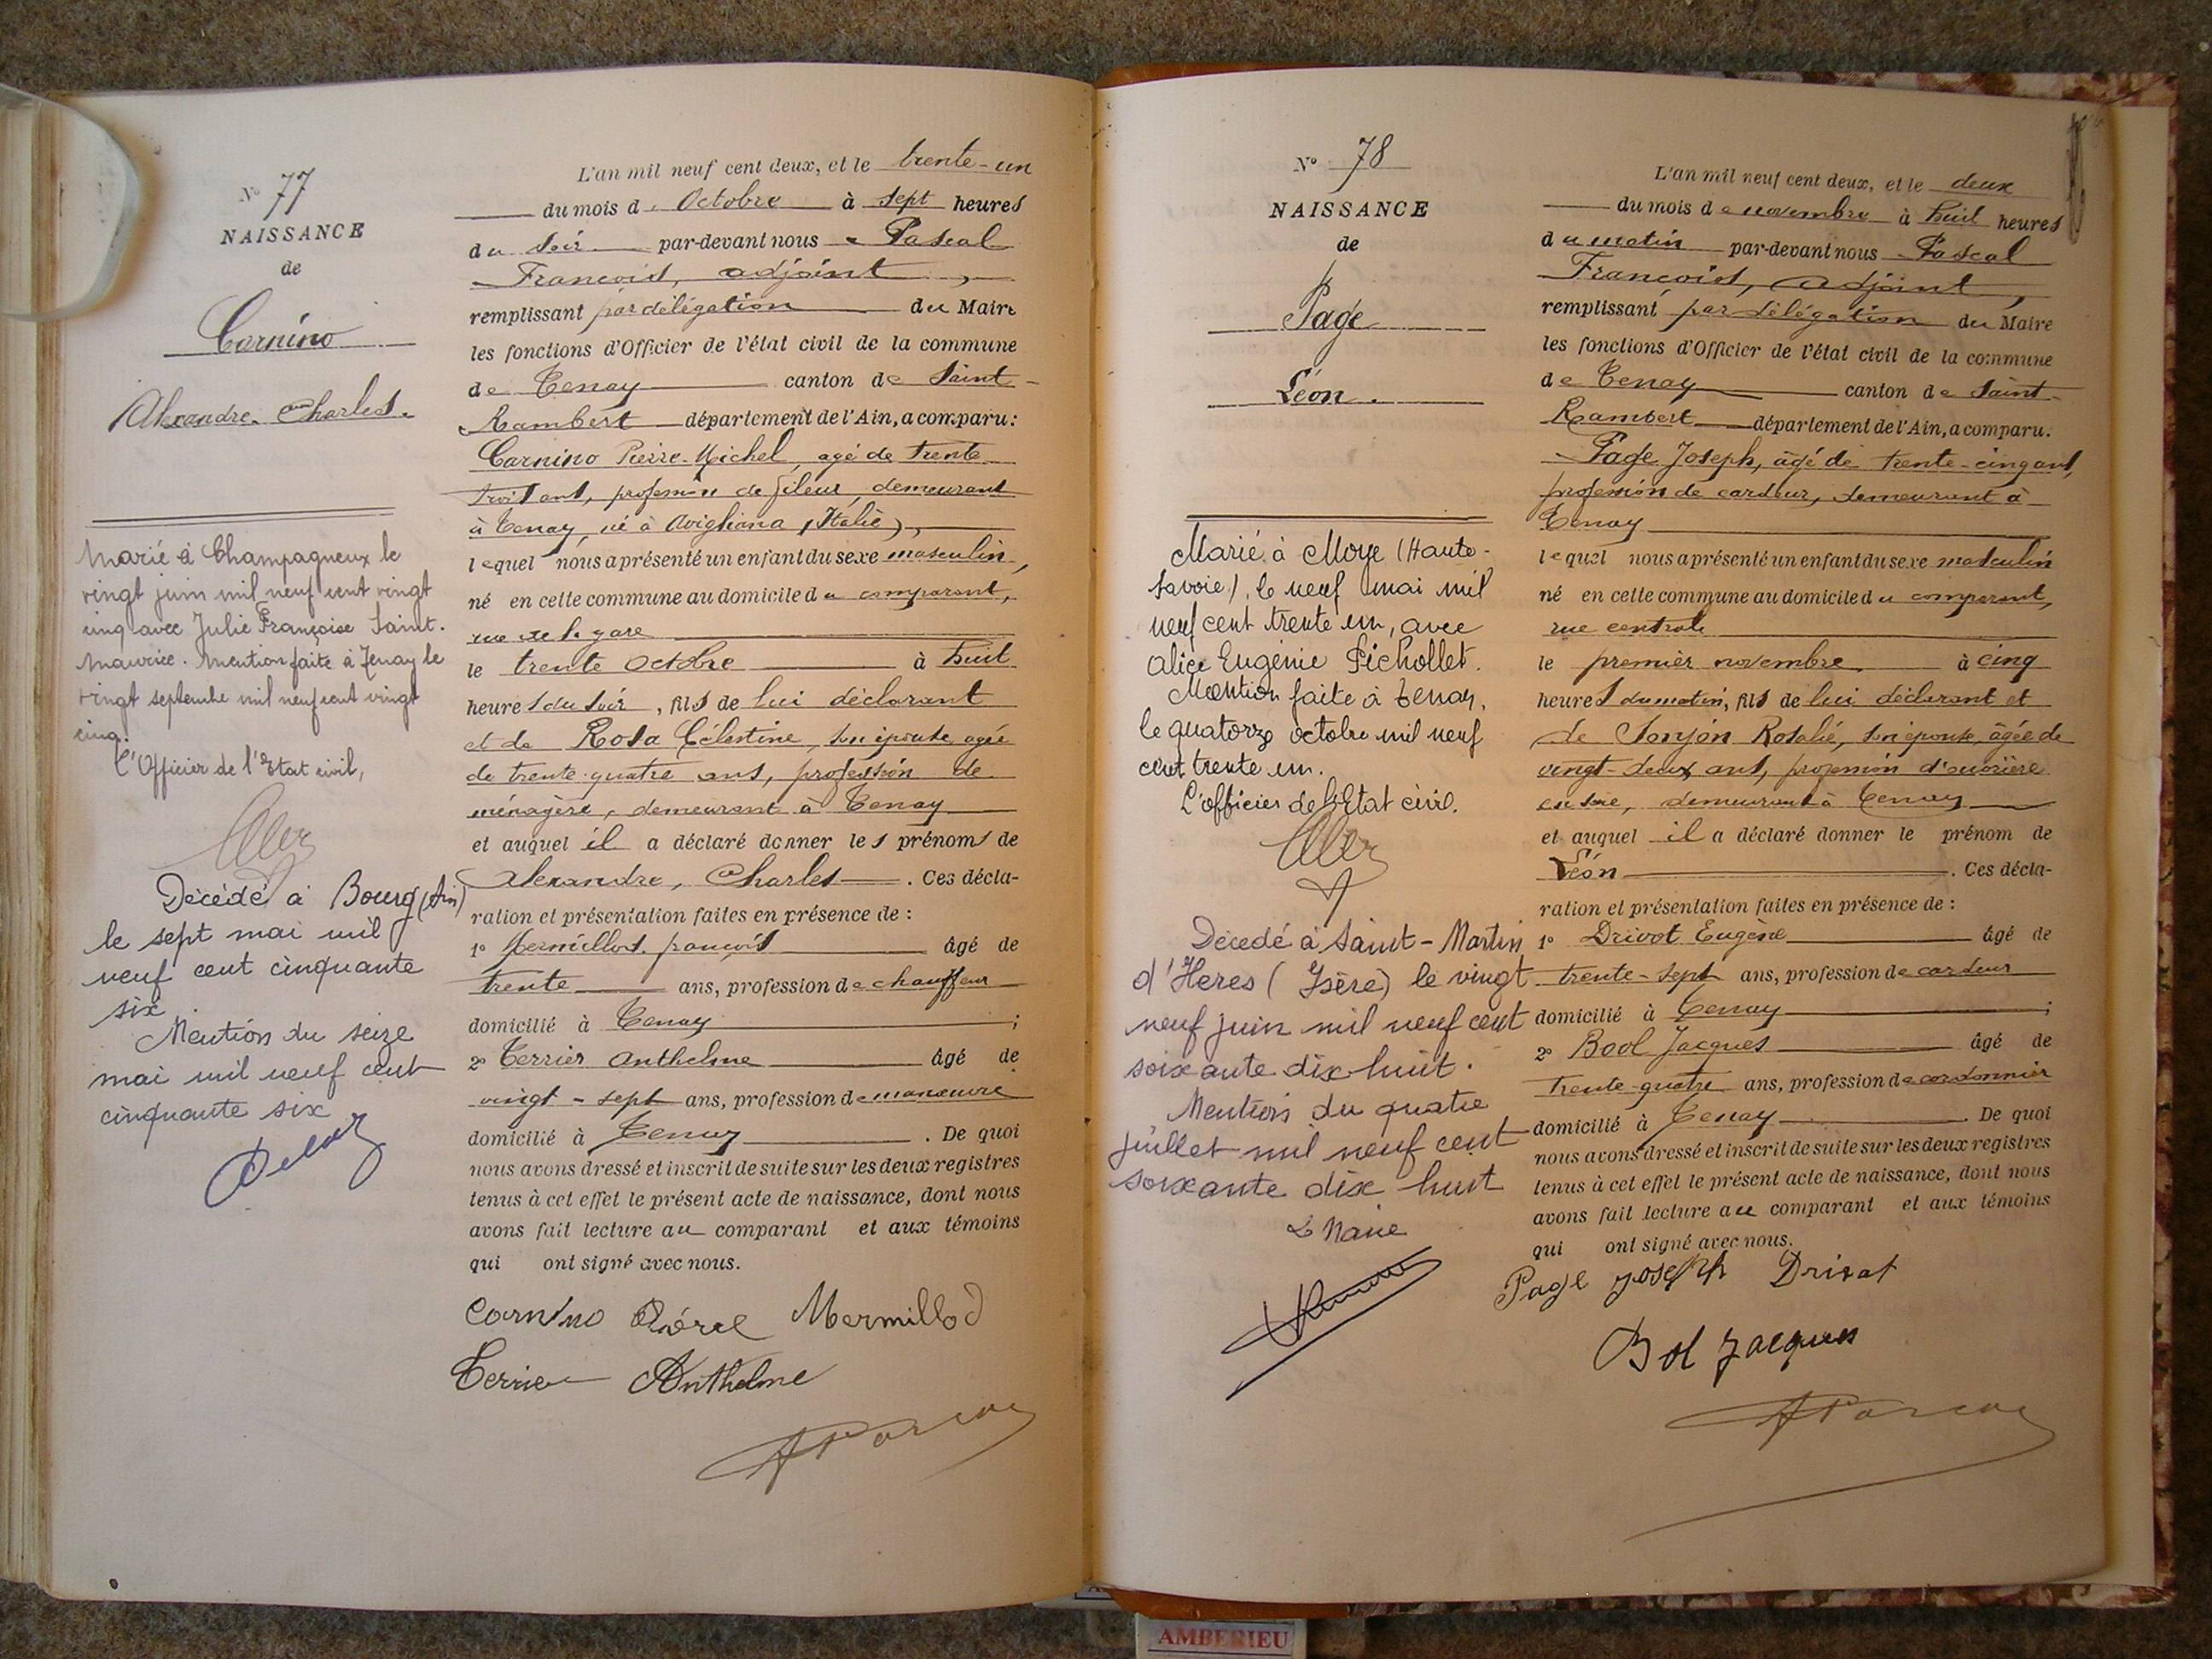 N° 77
NAISSANCE
de
Carnino
Alexandre Charles.
Marié à Champagneux le
vingt juin mil neuf cent vingt
cinq avec Julie Françoise Saint-
Maurice. Mention faite à Tenay le
vingt septembre mil neuf cent vingt
cinq.
L'Officier de l'Etat civil,
Décédé à Bourg (Ain)
le sept mai mil
neuf cent cinquante
six
Mention du seize
mai mil neuf cent
cinquante six
L'an mil neuf cent deux, et le trente-un
du mois d'Octobre à sept heures
du soir par-devant nous Pascal
François, adjoint,
remplissant par délégation du Maire
les fonctions d'Officier de l'état civil de la commune
de Tenay canton de Saint-
Rambert département de l'Ain, a comparu:
Carnino Pierre-Michel, agé de trente
trois ans, profession de fileur, demeurant
à Tenay, né à Avigliana (Italie),
lequel nous a présenté un enfant du sexe masculin,
né en cette commune au domicile du comparant,
rue de la gare
le trente Octobre à huit
heures du soir, fils de lui déclarant
et de Rosa Célestine, son épouse, agée
de trente-quatre ans, profession de
ménagère, demeurant à Tenay
et auquel il a déclaré donner les prénoms de
Alexandre, Charles. Ces décla-
ration et présentation faites en présence de :
1° Mermillod françois âgé de
trente ans, profession de chauffeur
domicilié à Tenay ;
2° Terrier Anthelme âgé de
vingt-sept ans, profession de manœuvre
domicilié à Tenay. De quoi
nous avons dressé et inscrit de suite sur les deux registres
tenus à cet effet le présent acte de naissance, dont nous
avons fait lecture au comparant et aux témoins
qui ont signé avec nous.
Carnino Pierre Mermillod
Terrier Anthelme
N° 78
NAISSANCE
de
Page
Léon.
Marié à Moye (Haute-
Savoie), le neuf mai mil
neuf cent trente un, avec
Alice Eugénie Pichollet.
Mention faite à Tenay,
le quatorze octobre mil neuf
cent trente un.
L'officier de l'Etat civil.
Décédé à Saint-Martin
d'Heres (Isère) le vingt
neuf juin mil neuf cent
soixante dix huit.
Mention du quatre
juillet mil neuf cent
soixante dix huit
Le Maire
L'an mil neuf cent deux, et le deux
du mois de novembre à huit heures
du matin par-devant nous Pascal
François, adjoint,
remplissant par délégation du Maire
les fonctions d'Officier de l'état civil de la commune
de Tenay canton de Saint-
Rambert département de l'Ain, a comparu.
Page Joseph, âgé de trente-cinq ans,
profession de cardeur, demeurant à
Tenay
lequel nous a présenté un enfant du sexe masculin
né en cette commune au domicile du comparant,
rue centrale
le premier novembre à cinq
heures du matin, fils de lui déclarant et
de Sonjon Rosalie, son épouse, âgée de
vingt-deux ans, profession d'ouvrière
en soie, demeurant à Tenay
et auquel il a déclaré donner le prénom de
Léon. Ces décla-
ration et présentation faites en présence de :
1° Drivot Eugène âgé de
trente-sept ans, profession de cardeur
domicilié à Tenay ;
2° Bool Jacques âgé de
trente-quatre ans, profession de cordonnier
domicilié à Tenay. De quoi
nous avons dressé et inscrit de suite sur les deux registres
tenus à cet effet le présent acte de naissance, dont nous
avons fait lecture au comparant et aux témoins
qui ont signé avec nous.
Page Joseph Drivat
Bol Jacques
AMBERIEU